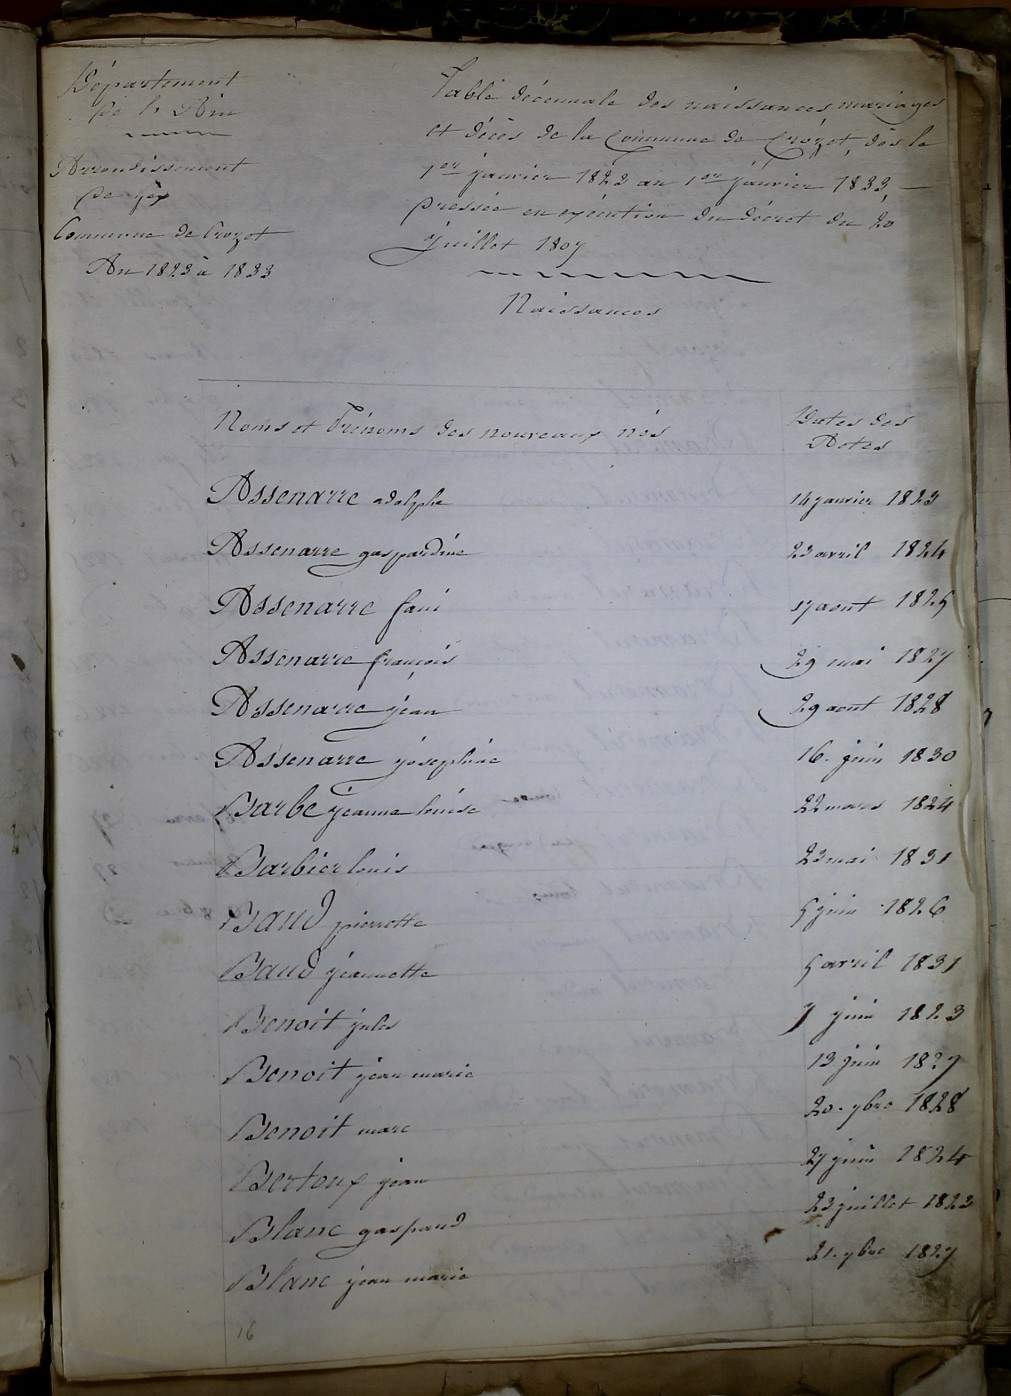 Département
de l'Ain
Arrondissement
de Gex
Commune de Crozet
An 1823 à 1833
Table décennale des naissances, mariages
et décès de la Commune de Crozet, dès le
1er janvier 1823 au 1er janvier 1833,
dressée en exécution du décret du 20
Juillet 1807
Naissances
Noms et Prénoms des nouveaux nés
Dates des
Actes
Assenarre adolphe 14 janvier 1823
Assenarre gaspardine 23 avril 1824
Assenarre fani 17 aout 1825
Assenarre françois 29 mai 1827
Assenarre jean 29 aout 1828
Assenarre josephine 16. juin 1830
Barbe jeanne louise 22 mars 1824
Barbier louis 23 mai 1831
Baud pierrette 5 juin 1826
Baud jeannette 5 avril 1831
Benoit jules 7 juin 1823
Benoit jean marie 13 juin 1827
Benoit marc 20. 7bre 1828
Bertoux jean 27 juin 1824
Blanc gaspard 23 juillet 1823
Blanc jean marie 21. 7bre 1827
16